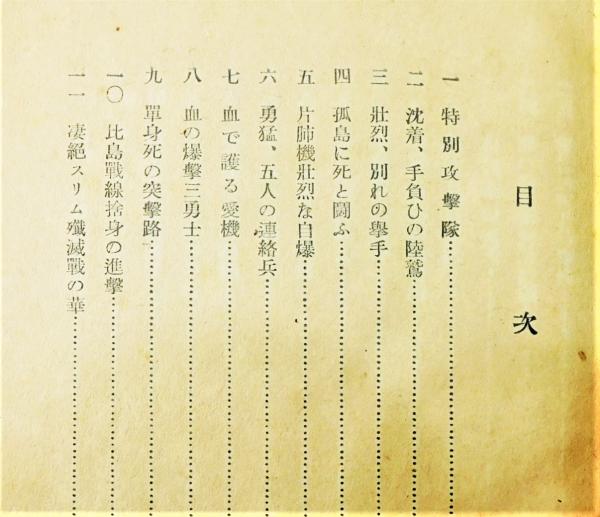 目次
一 特別攻擊隊
二 沈着、手負ひの陸鷲
三 壯烈、別れの擧手
四 孤島に死と鬪ふ
五 片肺機壯烈な自爆
六 勇猛、五人の連絡兵
七 血で護る愛機
八 血の爆擊三勇士
九 單身死の突擊路
一〇 比島戰線捨身の進擊
一一 凄絕スリム殲滅戰の華